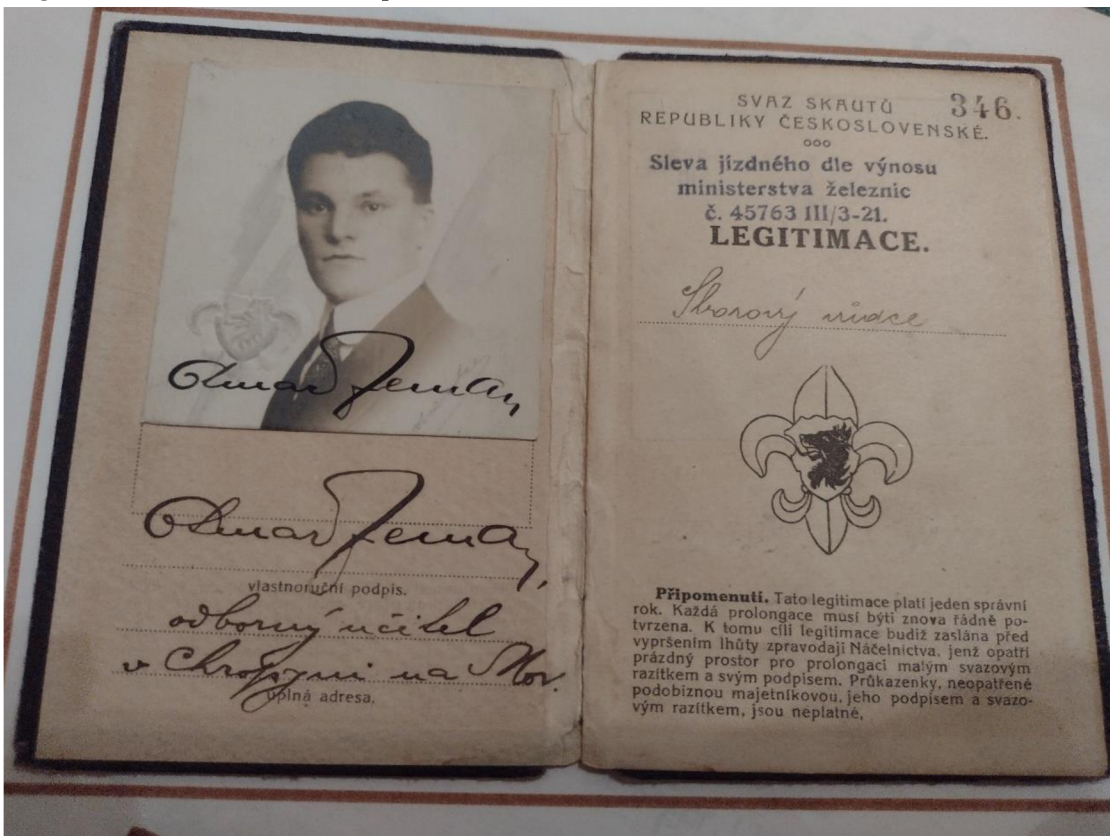 Otmar Zeman
Otmar Zeman,
vlastnoruční podpis.
odborný učitel
v Chropyni na Mor.
úplná adresa.
SVAZ SKAUTŮ
346.
REPUBLIKY ČESKOSLOVENSKÉ.
ooo
Sleva jízdného dle výnosu
ministerstva železnic
č. 45763 III/3-21.
LEGITIMACE.
Sborový vůdce
Připomenutí. Tato legitimace platí jeden správní
rok. Každá prolongace musí býti znova řádně po-
tvrzena. K tomu cíli legitimace budiž zaslána před
vypršením lhůty zpravodaji Náčelnictva, jenž opatří
prázdný prostor pro prolongaci malým svazovým
razítkem a svým podpisem. Průkazenky, neopatřené
podobiznou majetníkovou, jeho podpisem a svazo-
vým razítkem, jsou neplatné,